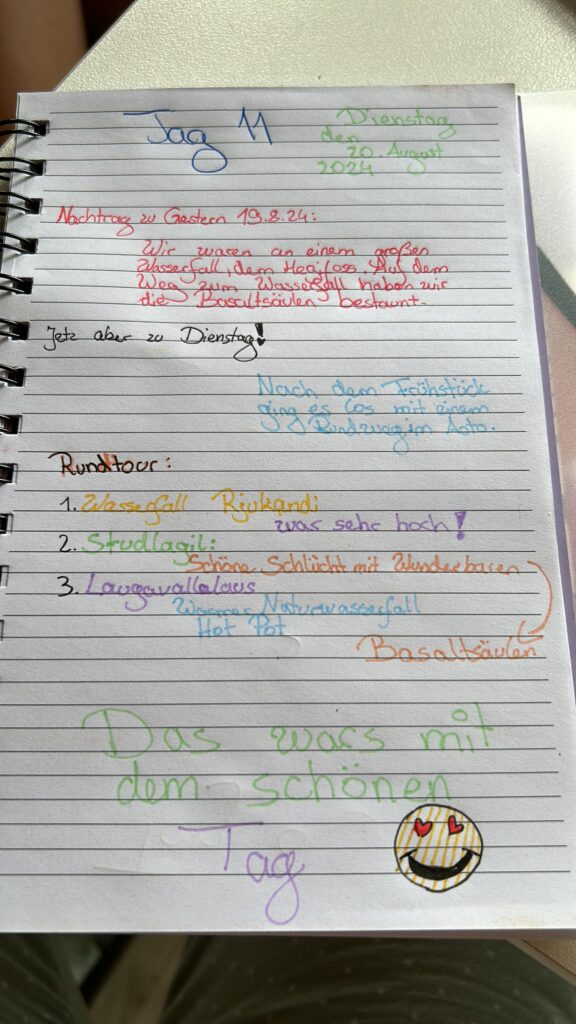 Tag 11
Dienstag
den
20. August
2024
Nachtrag zu Gestern 19.8.24:
Wir waren an einem großen
Wasserfall, dem Hegifoss. Auf dem
Weg zum Wasserfall haben wir
die Basaltsäulen bestaunt.
Jetz aber zu Dienstag!
Nach dem Frühstück
ging es los mit einem
Rundweg im Auto.
Rundtour:
1. Wasserfall Rjukandi
war sehr hoch!
2. Studlagil:
Schöne Schlucht mit Wunderbaren
3. Laugavallalaus
Warmer Naturwasserfall
Hot Pot
Basaltsäulen
Das wars mit
dem schönen
Tag